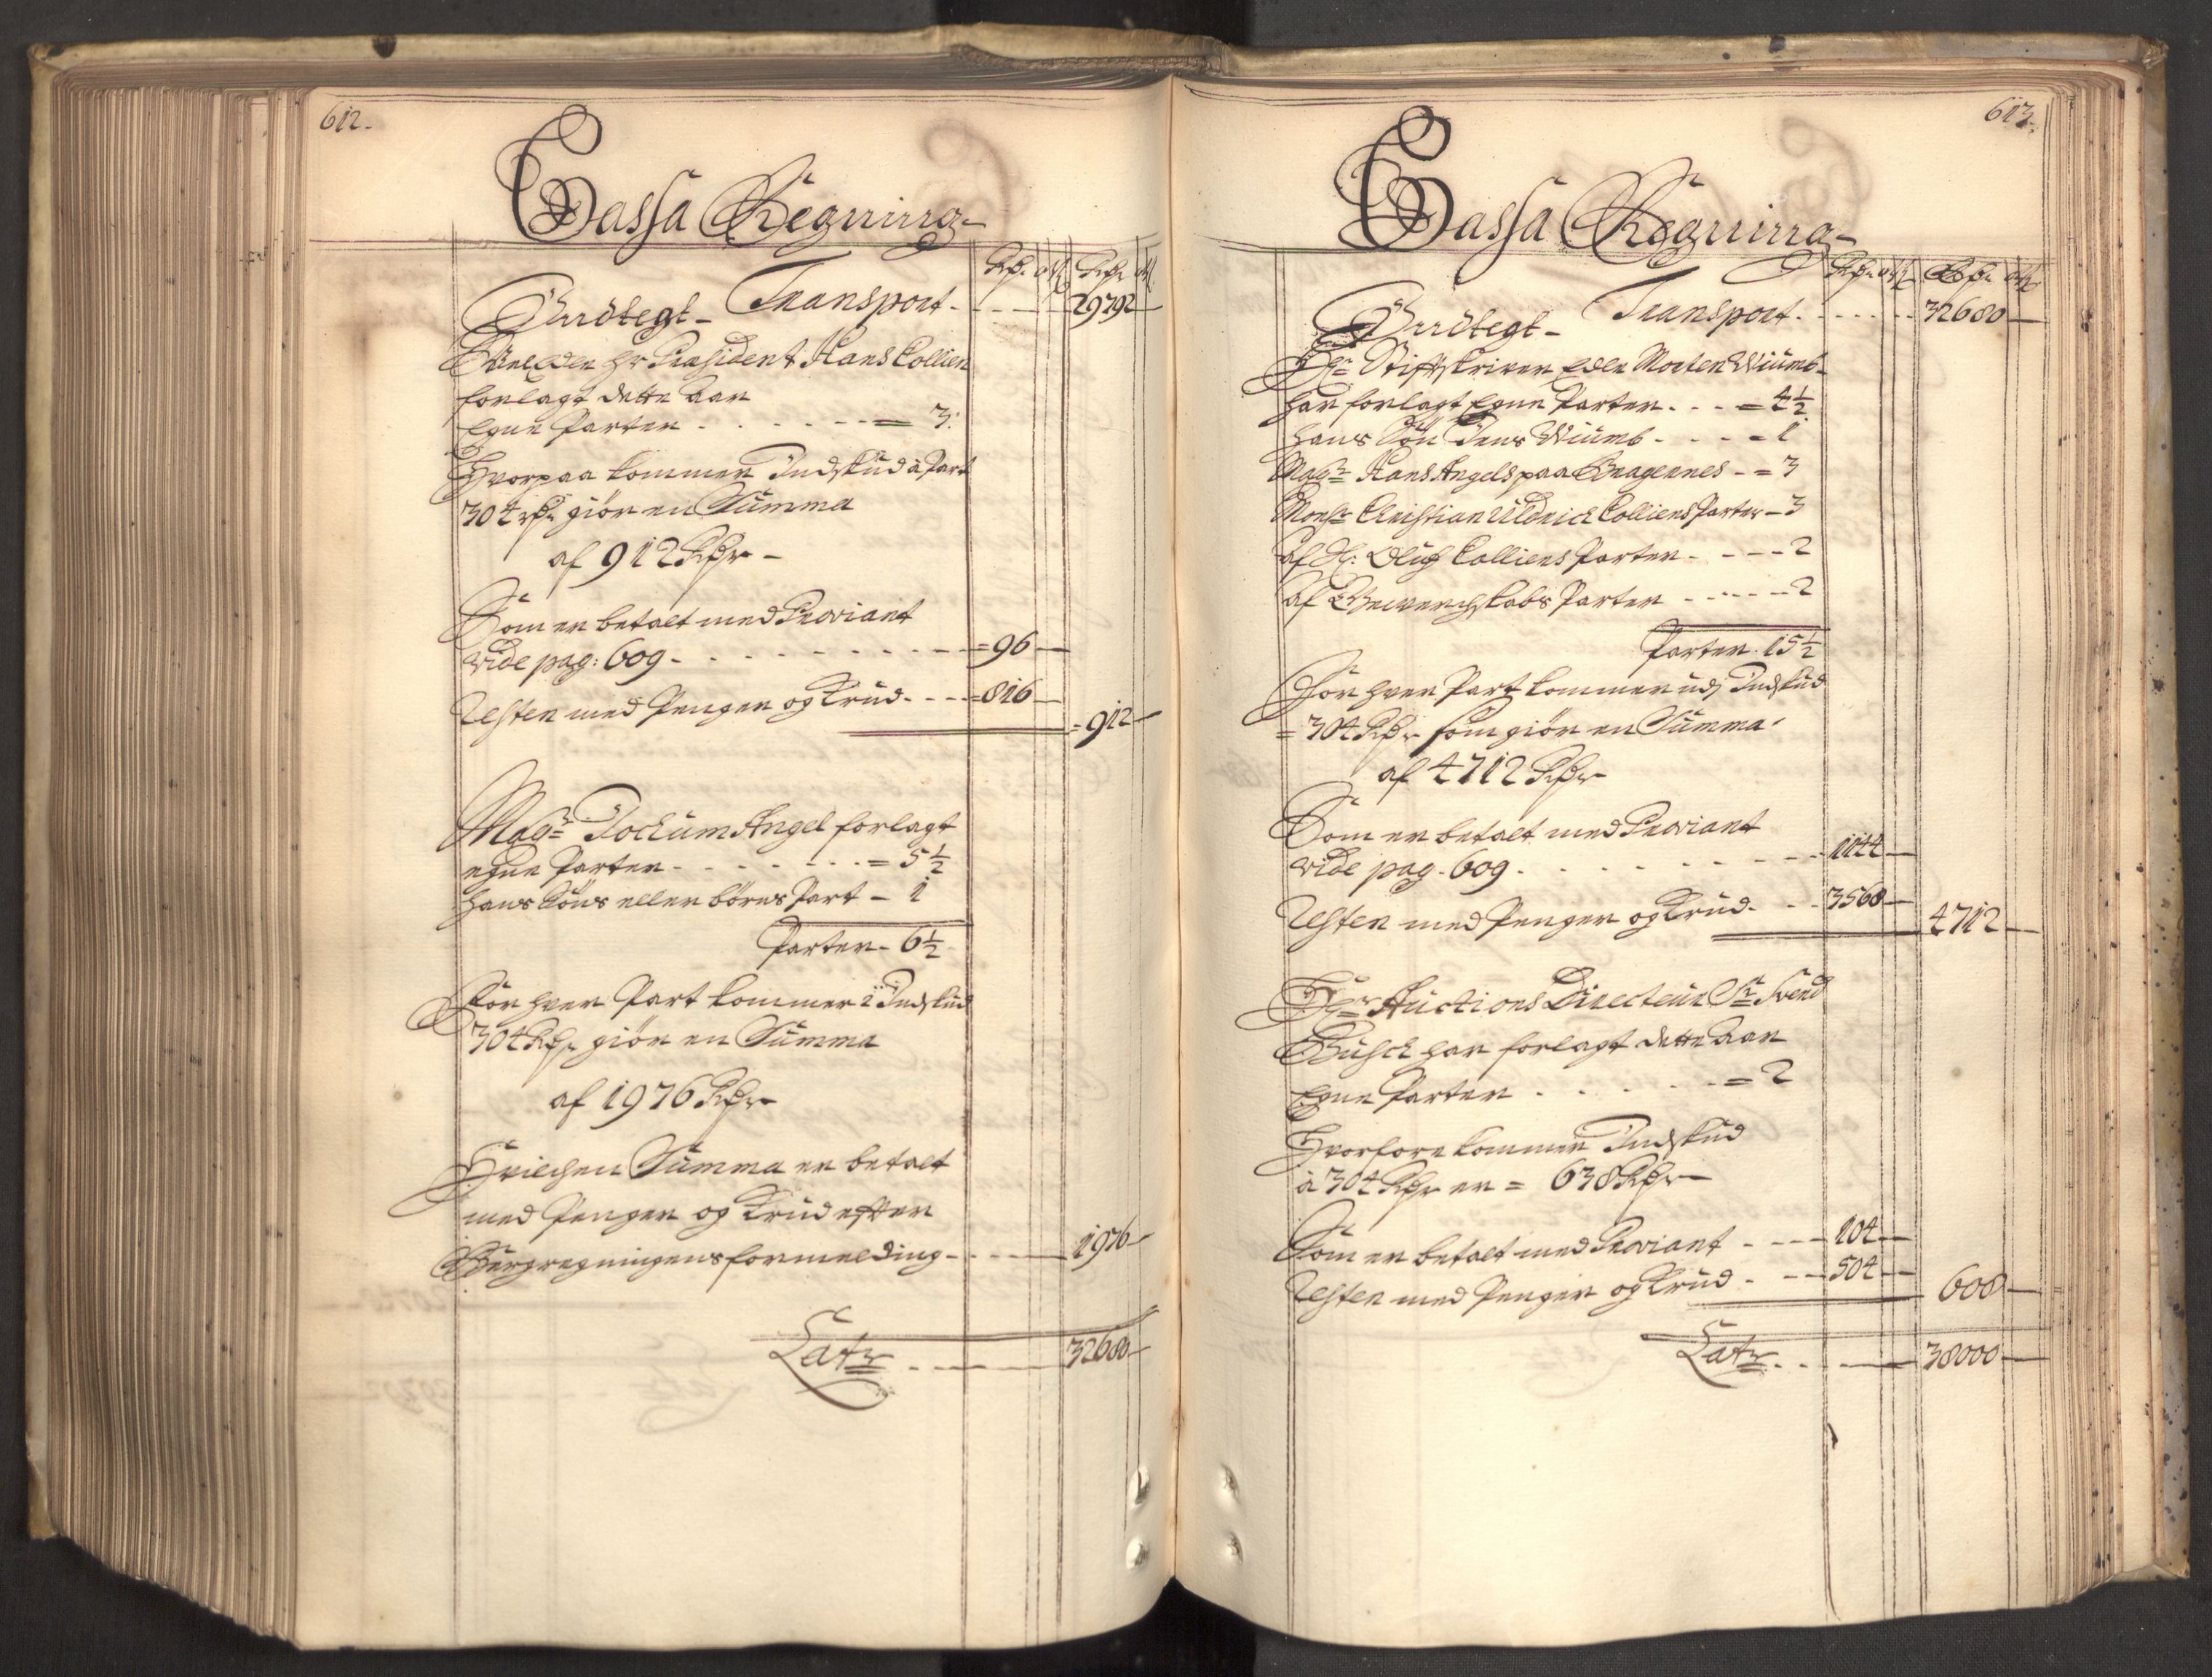 612.
Cassa Regning
Rdr. Mk Rdr. Mk
Indtegt - Transport. - - - 29792 -
Velædle Hr President Hans Collien
forlagt dette Aar
Egne Parter - - - - - - = 3.
Hvorpaa kommer Indskud à Part
304 rdr. giör en Summa
af 912 Rdr -
Som er betalt med Proviant
vide pag: 609 - - - - - = 96 -
Resten med Penger og Krud - - - = 816 -
= 912 -
Magr. Jochum Angel forlagt
egne Parter - - - - - = 5½
hans Söns eller börns Part - 1
Parter - 6½
For hver Part kommer i Indskud
304 Rdr. giör en Summa
af 1976 Rdr
Hvilchen Summa er betalt
med Penger og Krud efter
Bergregningens formelding - - - 1976 -
Latr. - - - 32680 -
613.
Cassa Regning
Rdr. Mk Rdr. Mk
Indtegt - Transport. - - - 32680 -
Hr. Stiftskriver Edle Morten Wiumb
har forlagt Egne Parter. - - = 4½
hans Sön Jens Wiumb. - - - = 1
Magr. Hans Angels paa Bragernes - = 3
Monsr. Christian Uldrich Colliens Parter - 3
af Sl: Oluf Colliens Parter - - - - 2
af Gewerchskabs Parter - - - - - 2
Parter. 15½
For hver Part kommer udj Indskud
= 304 Rdr. som giör en Summa
af 4712 Rdr
Som er betalt med Proviant
vide pag. 609. - - - - - 1144 -
Resten med Penger og Krud. - - 3568 -
4712 -
Hr Auctions Directeur Sr. Svend
Busch har forlagt dette Aar
Egne Parter - - - - - = 2
Hvorfore kommer Indskud
à 304 Rdr er = 638 Rdr
Som er betalt med Proviant - - - 104 -
Resten med Penger og Krud - - - 504 -
608 -
Latr. - - - 38000 -